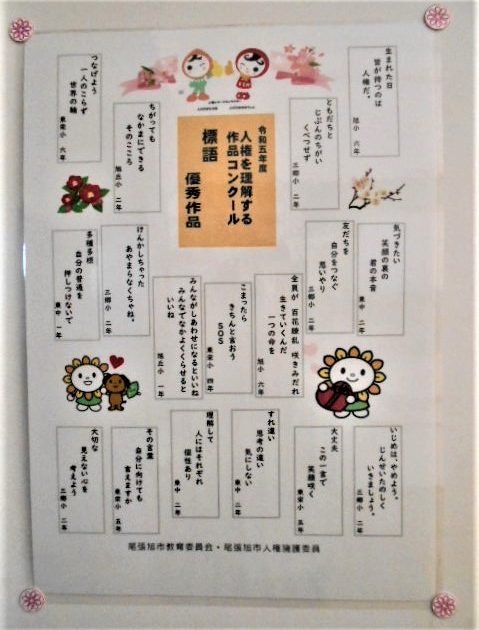 令和五年度
人権を理解する
作品コンクール
標語　優秀作品
生まれた日
皆が持つのは
人権だ。
旭小　六年
ともだちと
じぶんのちがい
くらべっせず
三郷小　二年
ちがっても
なかまにできる
そのこころ
旭丘小　二年
つなげよう
一人のこらず
世界の輪
東栄小　六年
気づきたい
笑顔の裏の
君の本音
東中　二年
友だちを
自分をつなぐ
思いやり
三郷小　二年
全員が　百花繚乱　咲きみだれ
生きていくんだ
一つの命を
旭小　六年
こまったら
きちんと言おう
SOS
東栄小　四年
みんながしあわせになるといいね
みんなでなかよくくらせると
いいね
旭丘小　一年
けんかしちゃった
あやまらなくちゃね。
三郷小　二年
多種多様
自分の普通を
押しつけないで
東中　一年
いじめは、やめよう。
じんせいたのしく
いきましょう。
三郷小　二年
大丈夫
この一言で
笑顔咲く
東栄小　五年
すれ違い
思考の違い
気にしない
東中　二年
理解して
人にはそれぞれ
個性あり
東中　二年
その言葉
自分に向けても
言えますか
東栄小　五年
大切な
見えない心を
考えよう
三郷小　二年
尾張旭市教育委員会・尾張旭市人権擁護委員